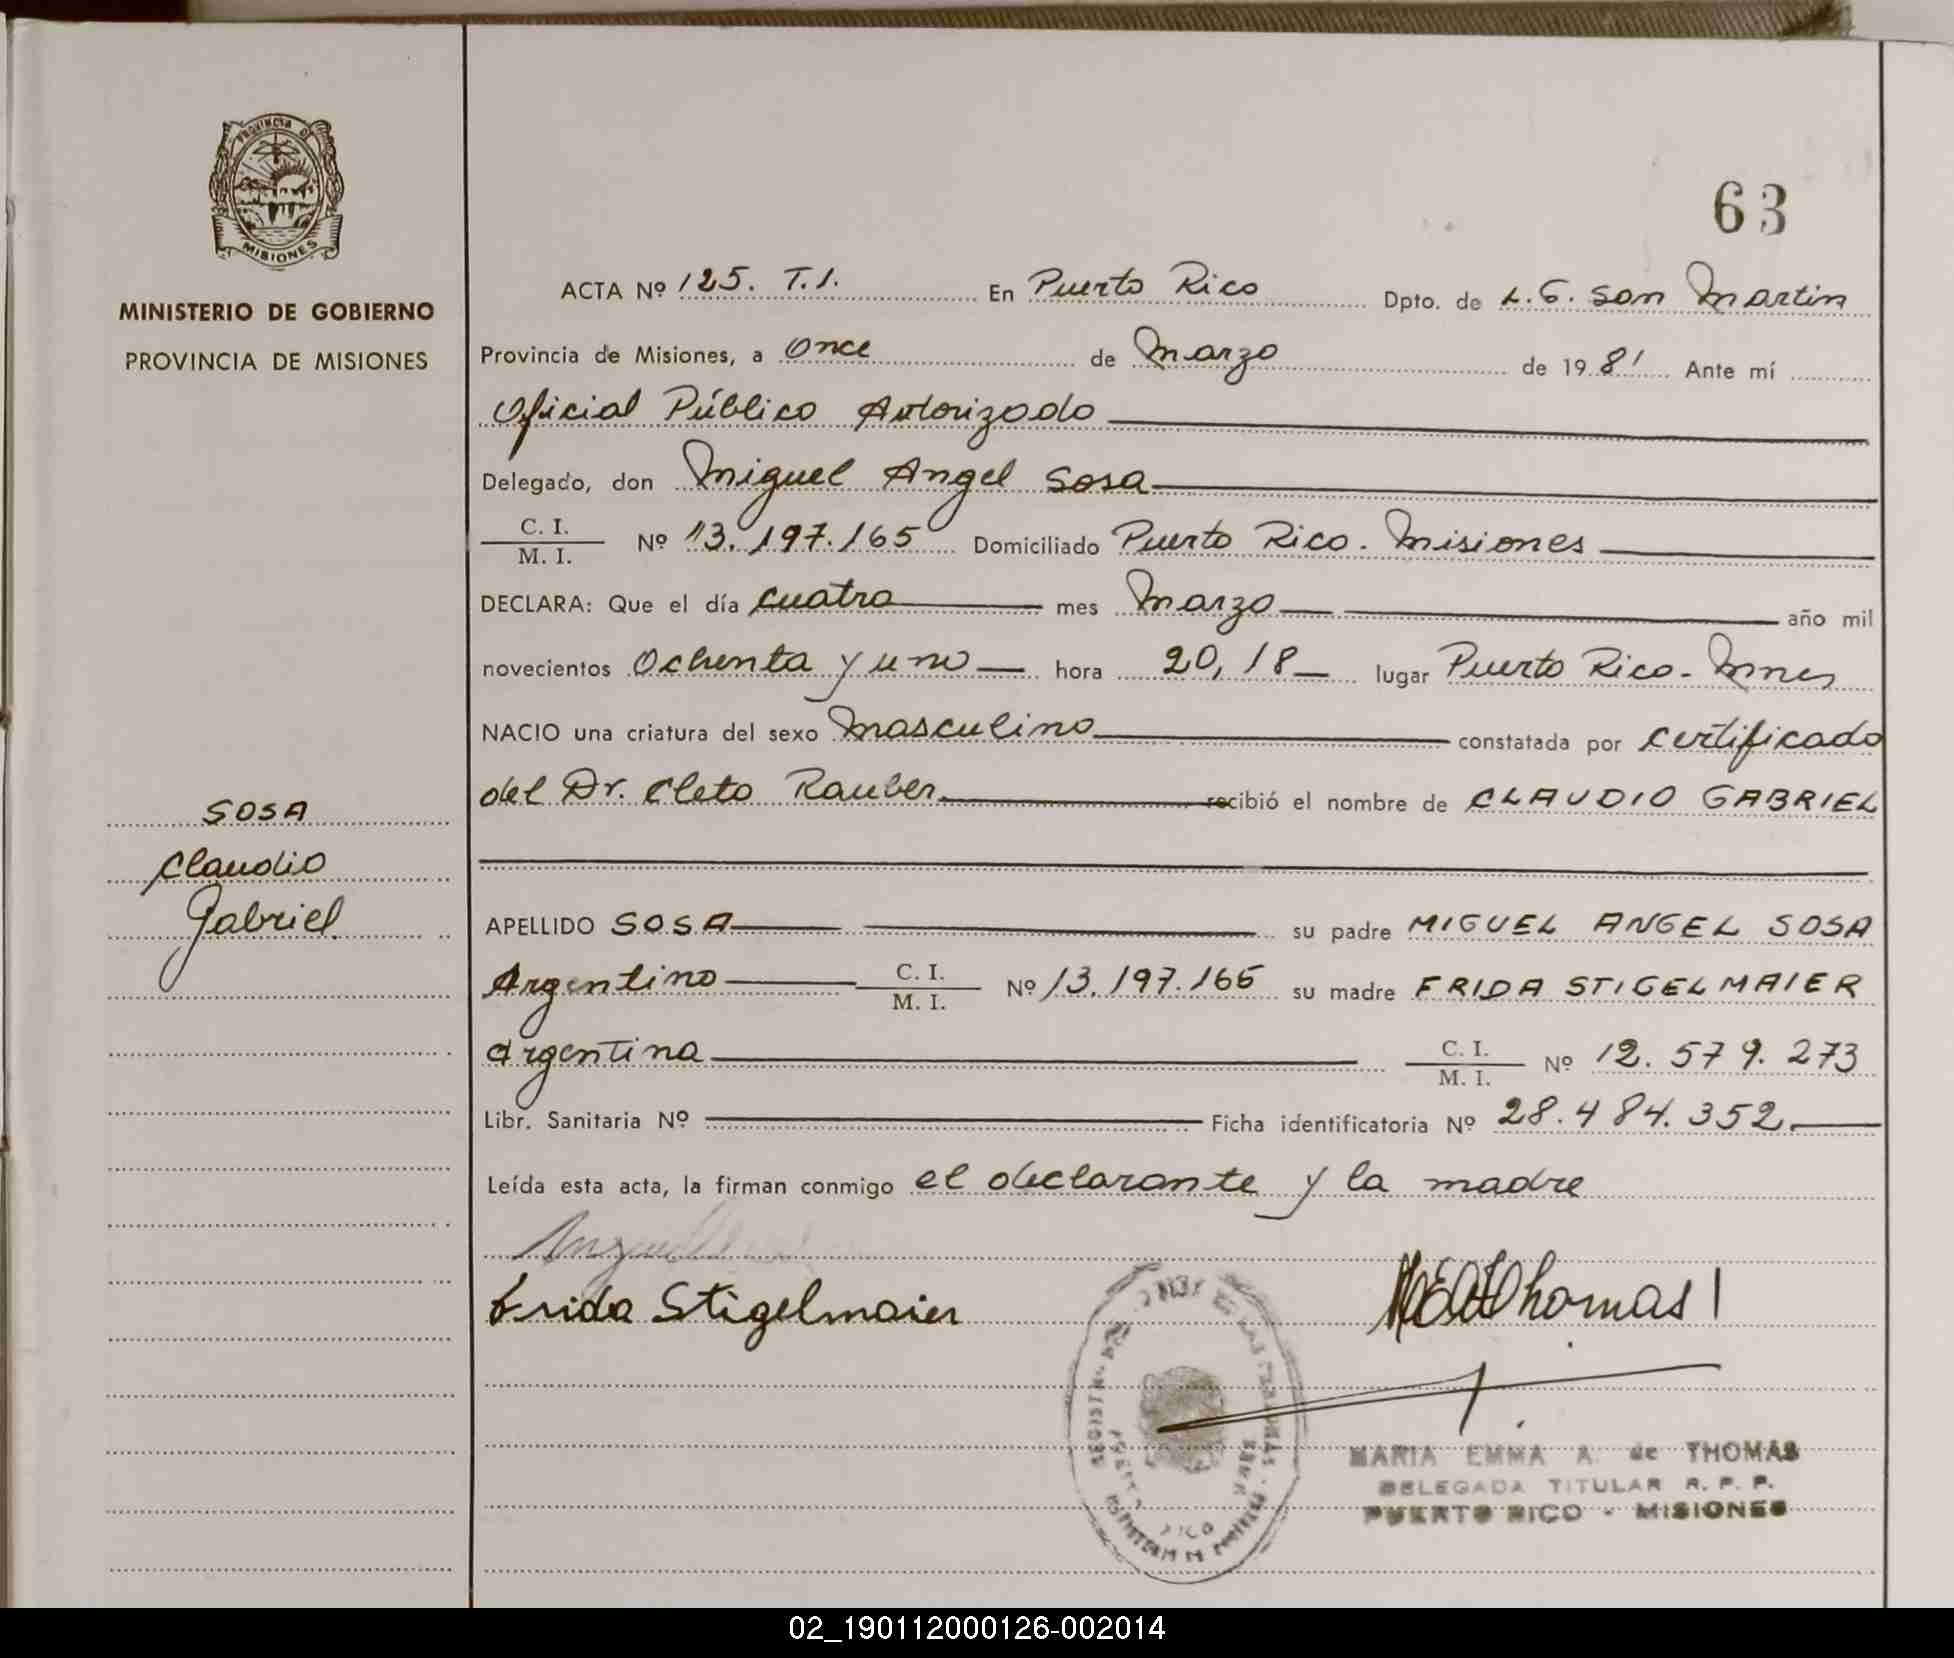 PROVINCIA DE
MISIONES
MINISTERIO DE GOBIERNO
PROVINCIA DE MISIONES
SOSA
Claudio
Gabriel
63
ACTA Nº 125. T.I. En Puerto Rico Dpto. de L.G. San Martin
Provincia de Misiones, a once de Marzo de 1981 Ante mí
Oficial Público Autorizado
Delegado, don Miguel Angel Sosa
C. I.
M. I. Nº 13.197.165 Domiciliado Puerto Rico. Misiones
DECLARA: Que el día cuatro mes Marzo año mil
novecientos Ochenta y uno hora 20,18 lugar Puerto Rico - Mnes
NACIO una criatura del sexo Masculino constatada por certificado
del Dr. Cleto Rauber recibió el nombre de CLAUDIO GABRIEL
APELLIDO SOSA su padre MIGUEL ANGEL SOSA
Argentino C. I.
M. I. Nº 13.197.165 su madre FRIDA STIGELMAIER
argentina C. I.
M. I. Nº 12.579.273
Libr. Sanitaria Nº Ficha identificatoria Nº 28.484.352
Leída esta acta, la firman conmigo el declarante y la madre
Frida Stigelmaier
Thomas
MARIA EMMA A. de THOMAS
DELEGADA TITULAR R. P. P.
PUERTO RICO - MISIONES
02_190112000126-002014